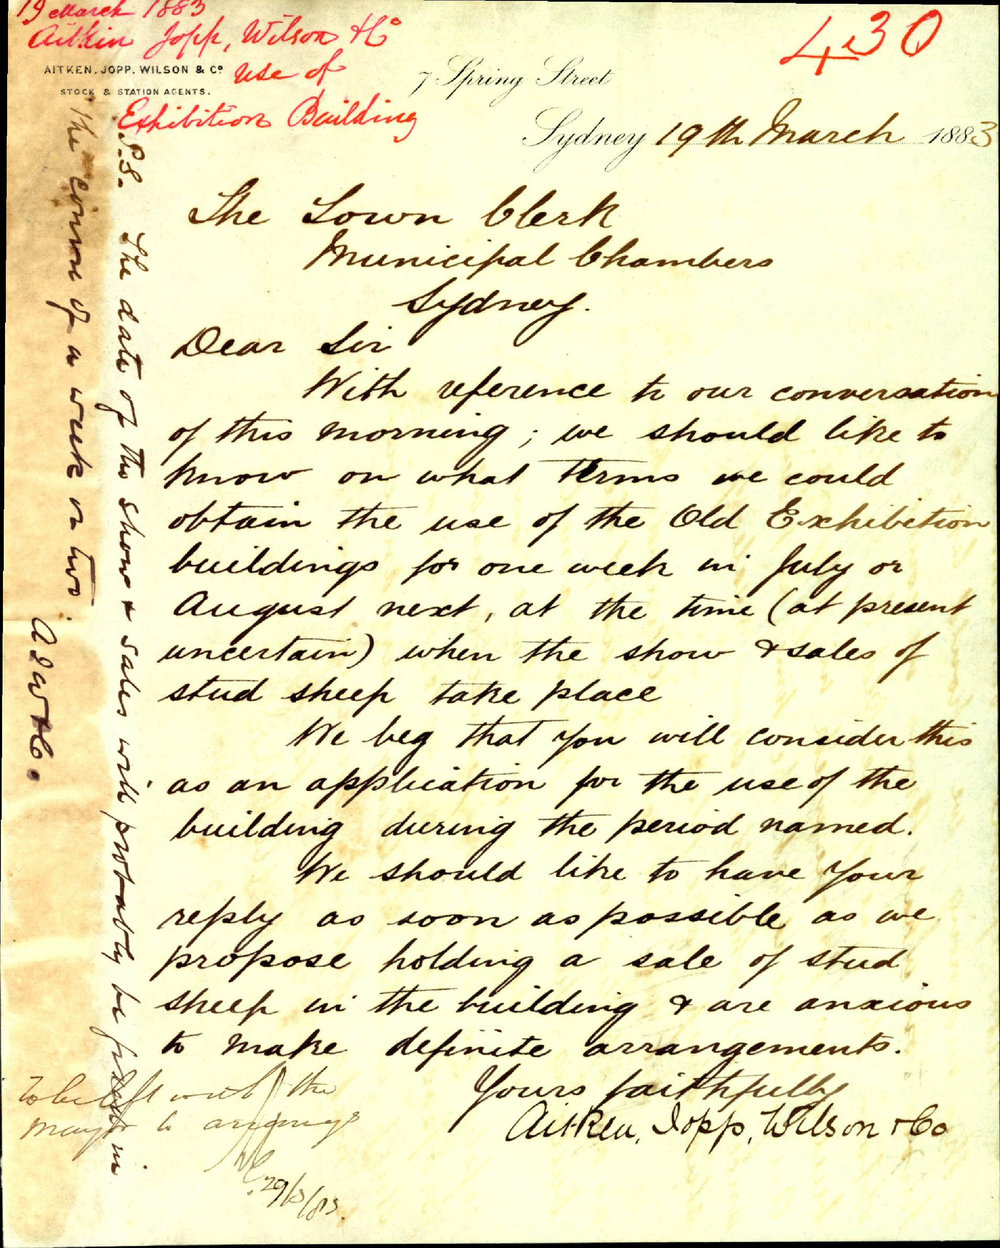 19 March 1883
Aitkin Jopp, Wilson & Co
Use of
Exhibition Building
430
AITKEN, JOPP, WILSON & Co
STOCK & STATION AGENTS.
7 Spring Street
Sydney 19th March 1883
The Town Clerk
Municipal Chambers
Sydney.
Dear Sir
With reference to our conversation
of this morning; we should like to
know on what terms we could
obtain the use of the Old Exhibition
buildings for one week in July or
August next, at the time (at present
uncertain) when the show & sales of
stud sheep take place
We beg that you will consider this
as an application for the use of the
building during the period named.
We should like to have your
reply as soon as possible as we
propose holding a sale of stud
sheep in the building & are anxious
to make definite arrangements.
Yours faithfully
Aitken, Jopp, Wilson & Co
P.S. The date of the show & sales will probably be fixed in
the course of a week or two.
A J W & Co.
To be left with the
Mayor to arrange
29/3/83.